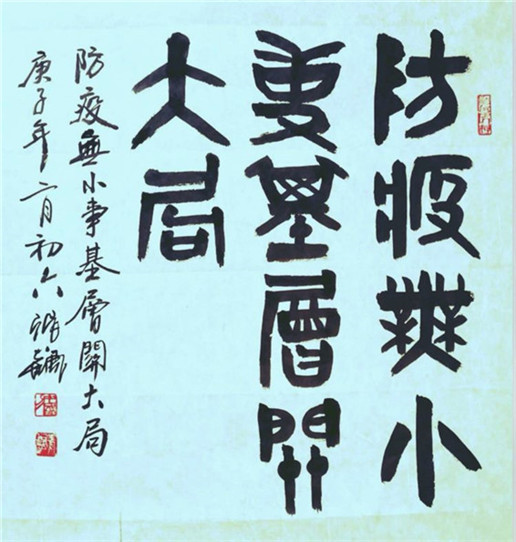 防疫無小
事基層關
大局
防疫無小事基層關大局
庚子年二月初六